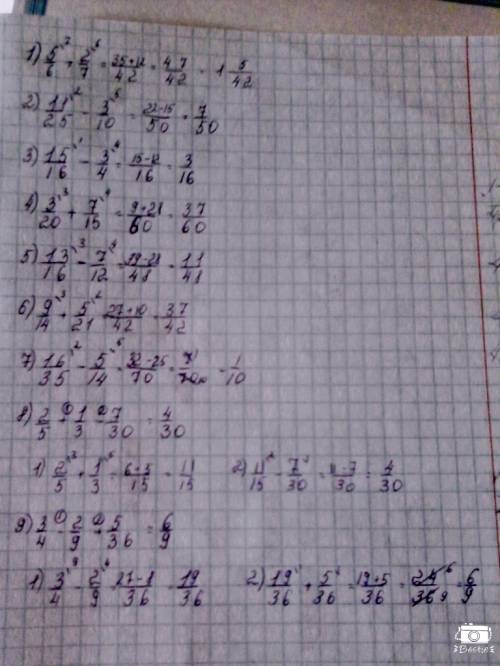 1) 5/6⁷ + 2/7⁶ = 35+12/42 = 47/42 = 1 5/42
2) 11/25² - 3/10⁵ = 22-15/50 = 7/50
3) 15/16¹ - 3/4⁴ = 15-12/16 = 3/16
4) 3/20³ + 7/15⁴ = 9+28/60 = 37/60
5) 13/16³ - 7/12⁴ = 39-28/48 = 11/48
6) 9/14³ + 5/21² = 27+10/42 = 37/42
7) 16/35² - 5/14⁵ = 32-25/70 = 7¹/70₁₀ = 1/10
8) 2/5 +① 1/3 -② 7/30 = 4/30
1) 2/5³ + 1/3⁵ = 6+5/15 = 11/15 2) 11/15² - 7/30¹ = 11-7/30 = 4/30
9) 3/4 -① 2/9 +② 5/36 = 6/9
1) 3/4⁹ - 2/9⁴ = 27-8/36 = 19/36 2) 19/36¹ + 5/36¹ = 19+5/36 = 24⁶/36₉ = 6/9